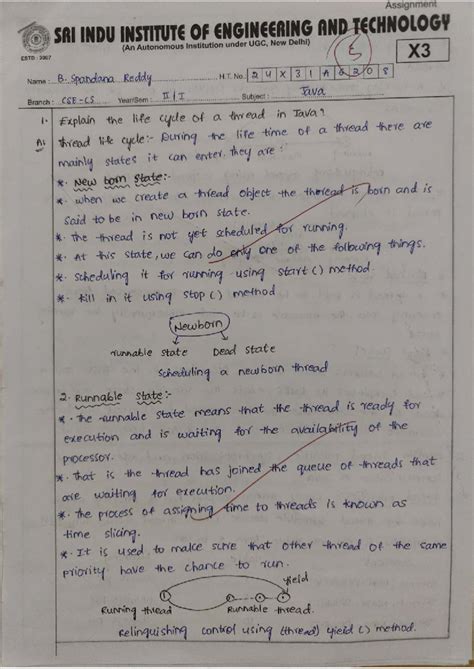 Assignment
SRI INDU INSTITUTE OF ENGINEERING AND TECHNOLOGY
(An Autonomous Institution under UGC, New Delhi)
ESTD : 2007
5
X3
Name : B. Spandana Reddy H.T. No. 24X31A6208
Branch : CSE-CS Year/Sem : II/I Subject : Java
1. Explain the life cycle of a thread in Java?
A) Thread life cycle:- During the life time of a thread there are
mainly states it can enter. they are :-
*. New born state:-
*. when we create a thread object the thread is born and is
said to be in new born state.
*. The thread is not yet scheduled for running.
*. At this state, we can do only one of the following things.
*. scheduling it for running using start() method.
*. kill in it using stop() method
Newborn
runnable state Dead state
scheduling a newborn thread
2. Runnable state:-
*. the runnable state means that the thread is ready for
execution and is waiting for the availability of the
processor.
*. That is the thread has joined the queue of threads that
are waiting for execution.
*. the process of assigning time to threads is known as
time slicing.
*. It is used to make sure that other thread of the same
priority have the chance to run.
yield
Running thread Runnable thread.
relinguishing control using (thread) yield () method.